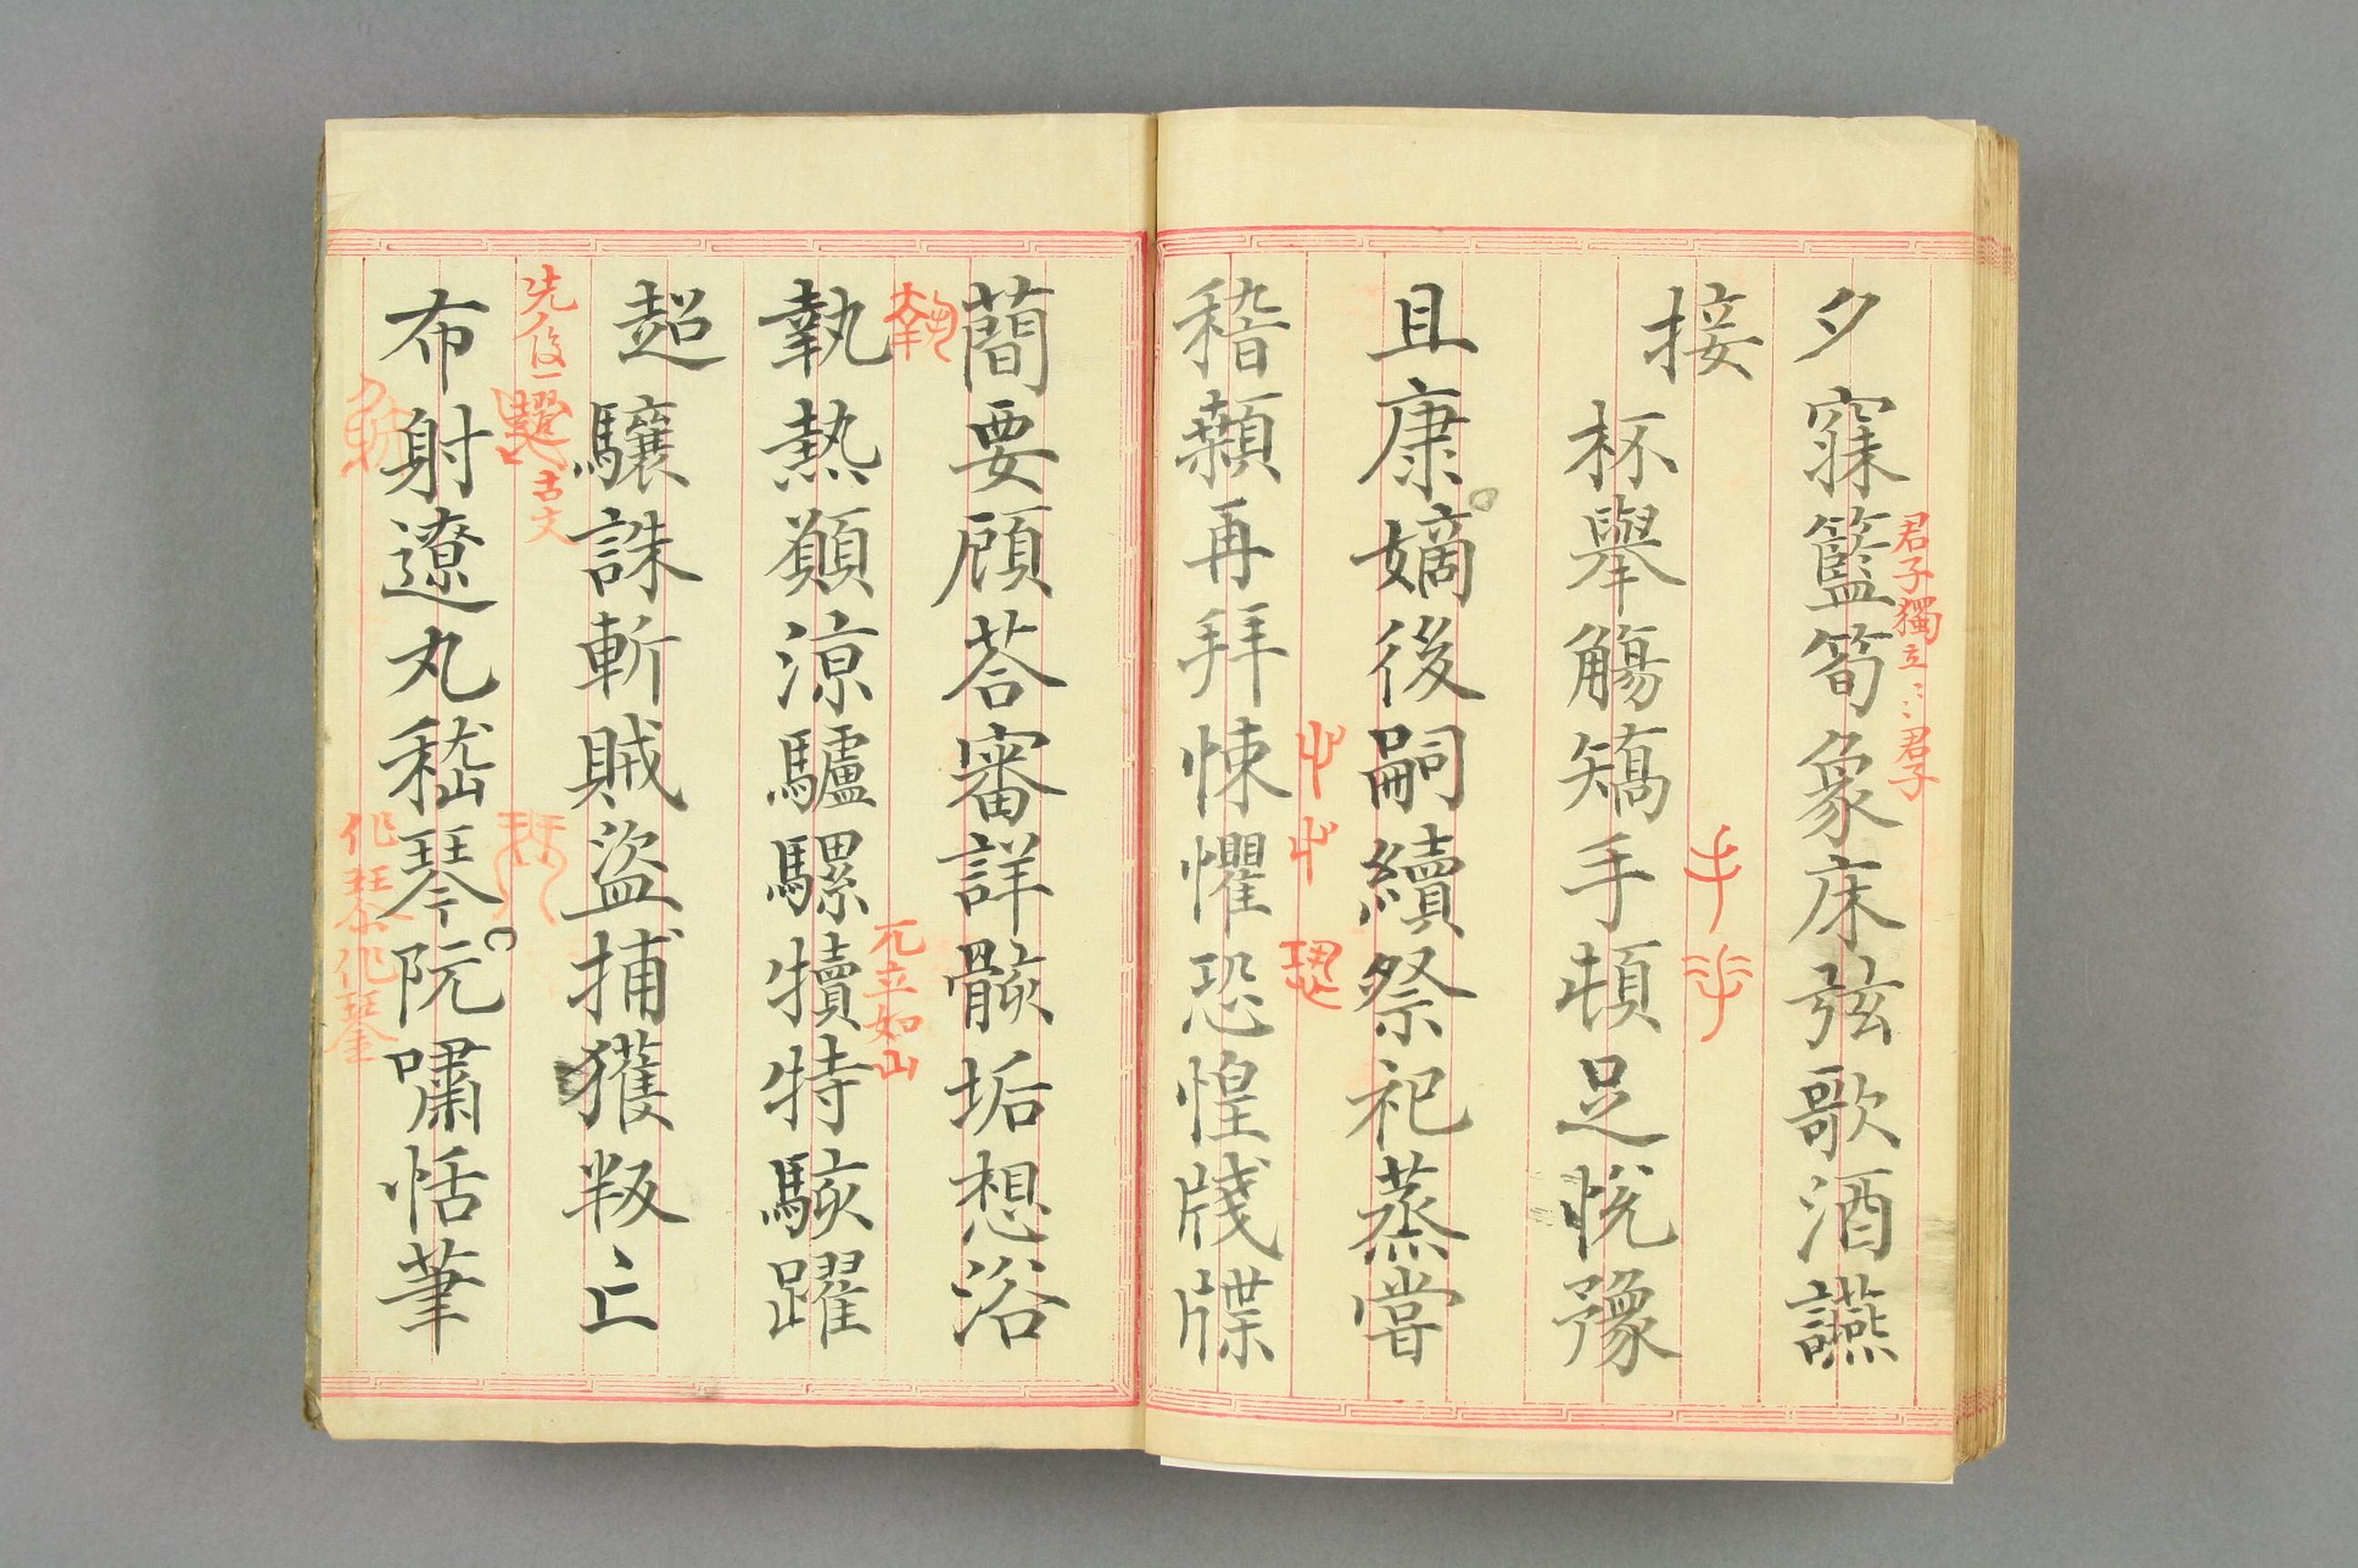 夕寐籃筍象床弦歌酒讌
君子獨立
君子
接
杯舉觴矯手頓足悅豫
手
且康嫡後嗣續祭祀蒸嘗
稽顙再拜悚懼恐惶牋牒
蕳要顧荅審詳骸垢想浴
執
執熱願涼驢騾犢特駭躍
兀立如山
超
驤誅斬賊盜捕獲叛亡
先後一
古文
布射遼丸嵇琴阮嘯恬筆
作琴作